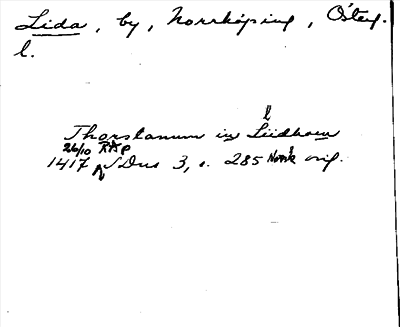 Lida, by, Norrköping, Östeg.
l.
l
Thorstanum in Liidhom
26/10 RAp
1417 SDns 3, s. 285 Norrk orig.